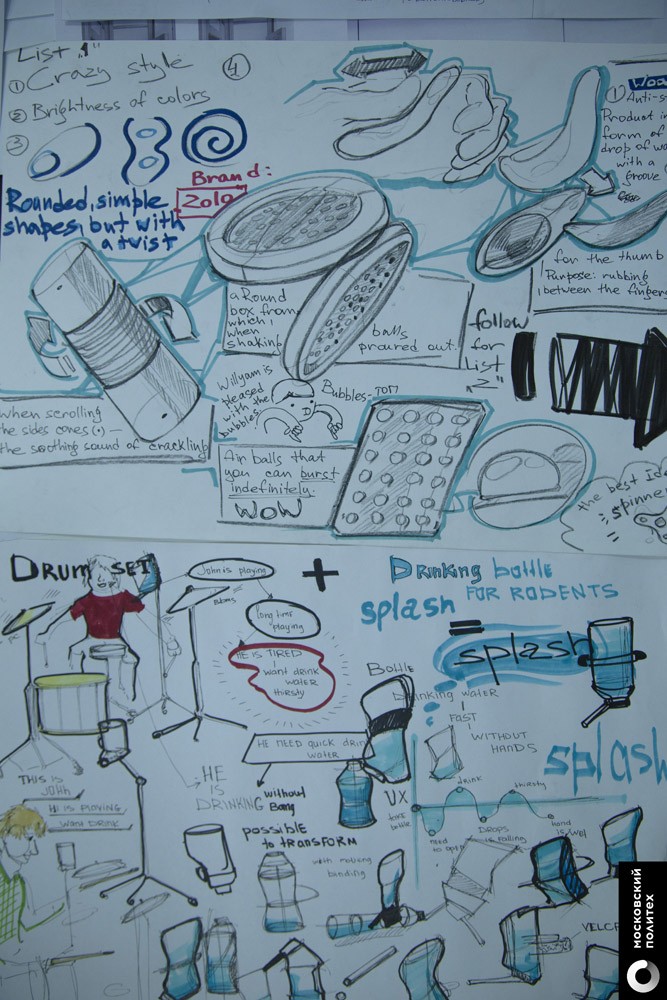 List "1"
① Crazy style
② Brightness of colors
③
④
Rounded, simple
shapes, but with
a twist
Brand:
Zolo
① Anti-s
Product in
form of
drop of wa
with a
groove
for the thumb
Purpose: rubbing
between the fingers
a Round
box from
which,
when
shaking
balls
poured out.
follow
for
List
"2"
Willyam is
pleased
with the
bubbles
Bubbles-
When scrolling
the sides cones (•) —
the soothing sound of crackling
Air balls that
you can burst
indefinitely.
WOW
the best Id
Spinne
DRUM SET
John is playing
+
long time
playing
HE IS TIRED
want drink
water
thirsty
Drinking bottle
FOR RODENTS
splash
=
splash
Bottle
Drinking water
FAST
WITHOUT
HANDS
splash
HE NEED QUICK drin
water
THIS IS
JOHN
HE IS PLAYING,
WANT DRINK
HE
IS
DRINKING
without
Bang
UX
take
bottle
drink
thirsty
need to op
DROPS
is falling
hand
is wet
possible
to TRANSFORM
with moving
banding
VELCR
МОСКОВСКИЙ
ПОЛИТЕХ